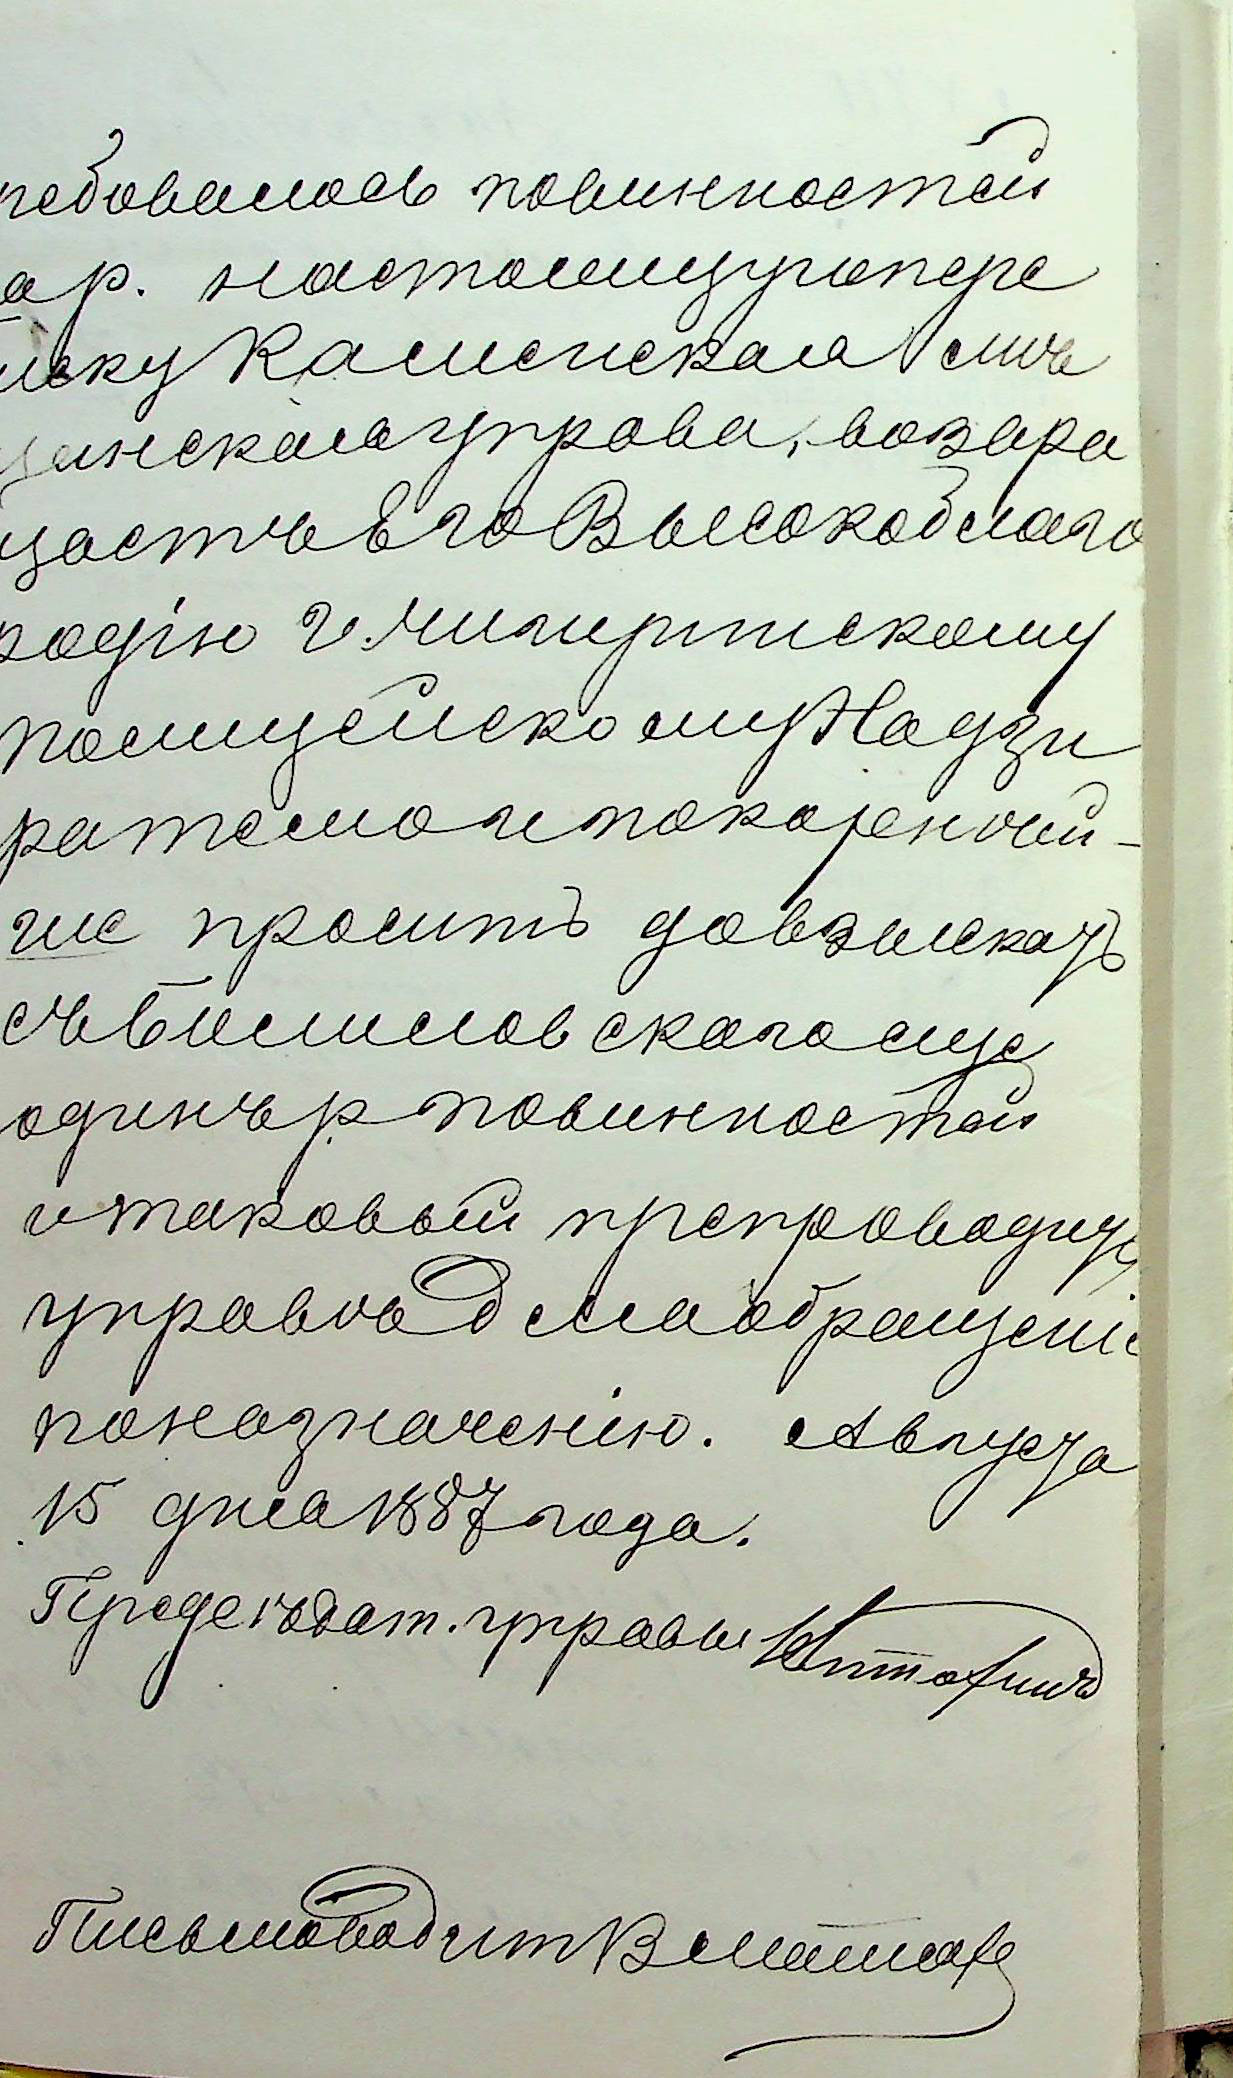 требовалось повинностей
а р. настоящую пере
писку Каменская мѣ
щанская управа, возвра
щаетъ Его Высокоблаго
родію г.
полицейскому Надзи
рателю и покорнѣй-
ше проситъ довзыскать
съ еще
одинъ р. повинностей
и таковый препроводить
управѣ для обращенія
по назначенію. Августа
15 дня 1887 года.
Предсѣдат. управы
Письмоводит